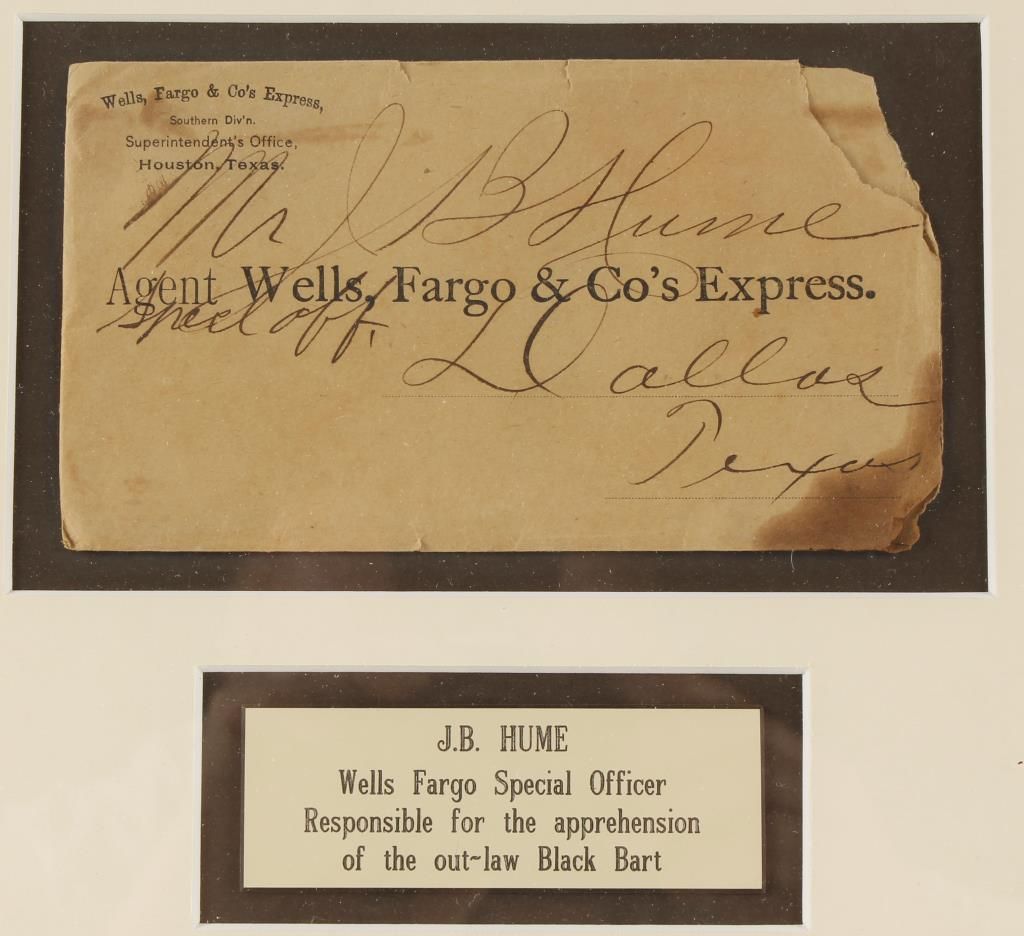 Wells, Fargo & Co's Express,
Southern Div'n.
Superintendent's Office,
Houston, Texas.
Mr J B Hume
Agent Wells, Fargo & Co's Express.
Specl off,
Dallas
Texas
J.B. HUME
Wells Fargo Special Officer
Responsible for the apprehension
of the out-law Black Bart